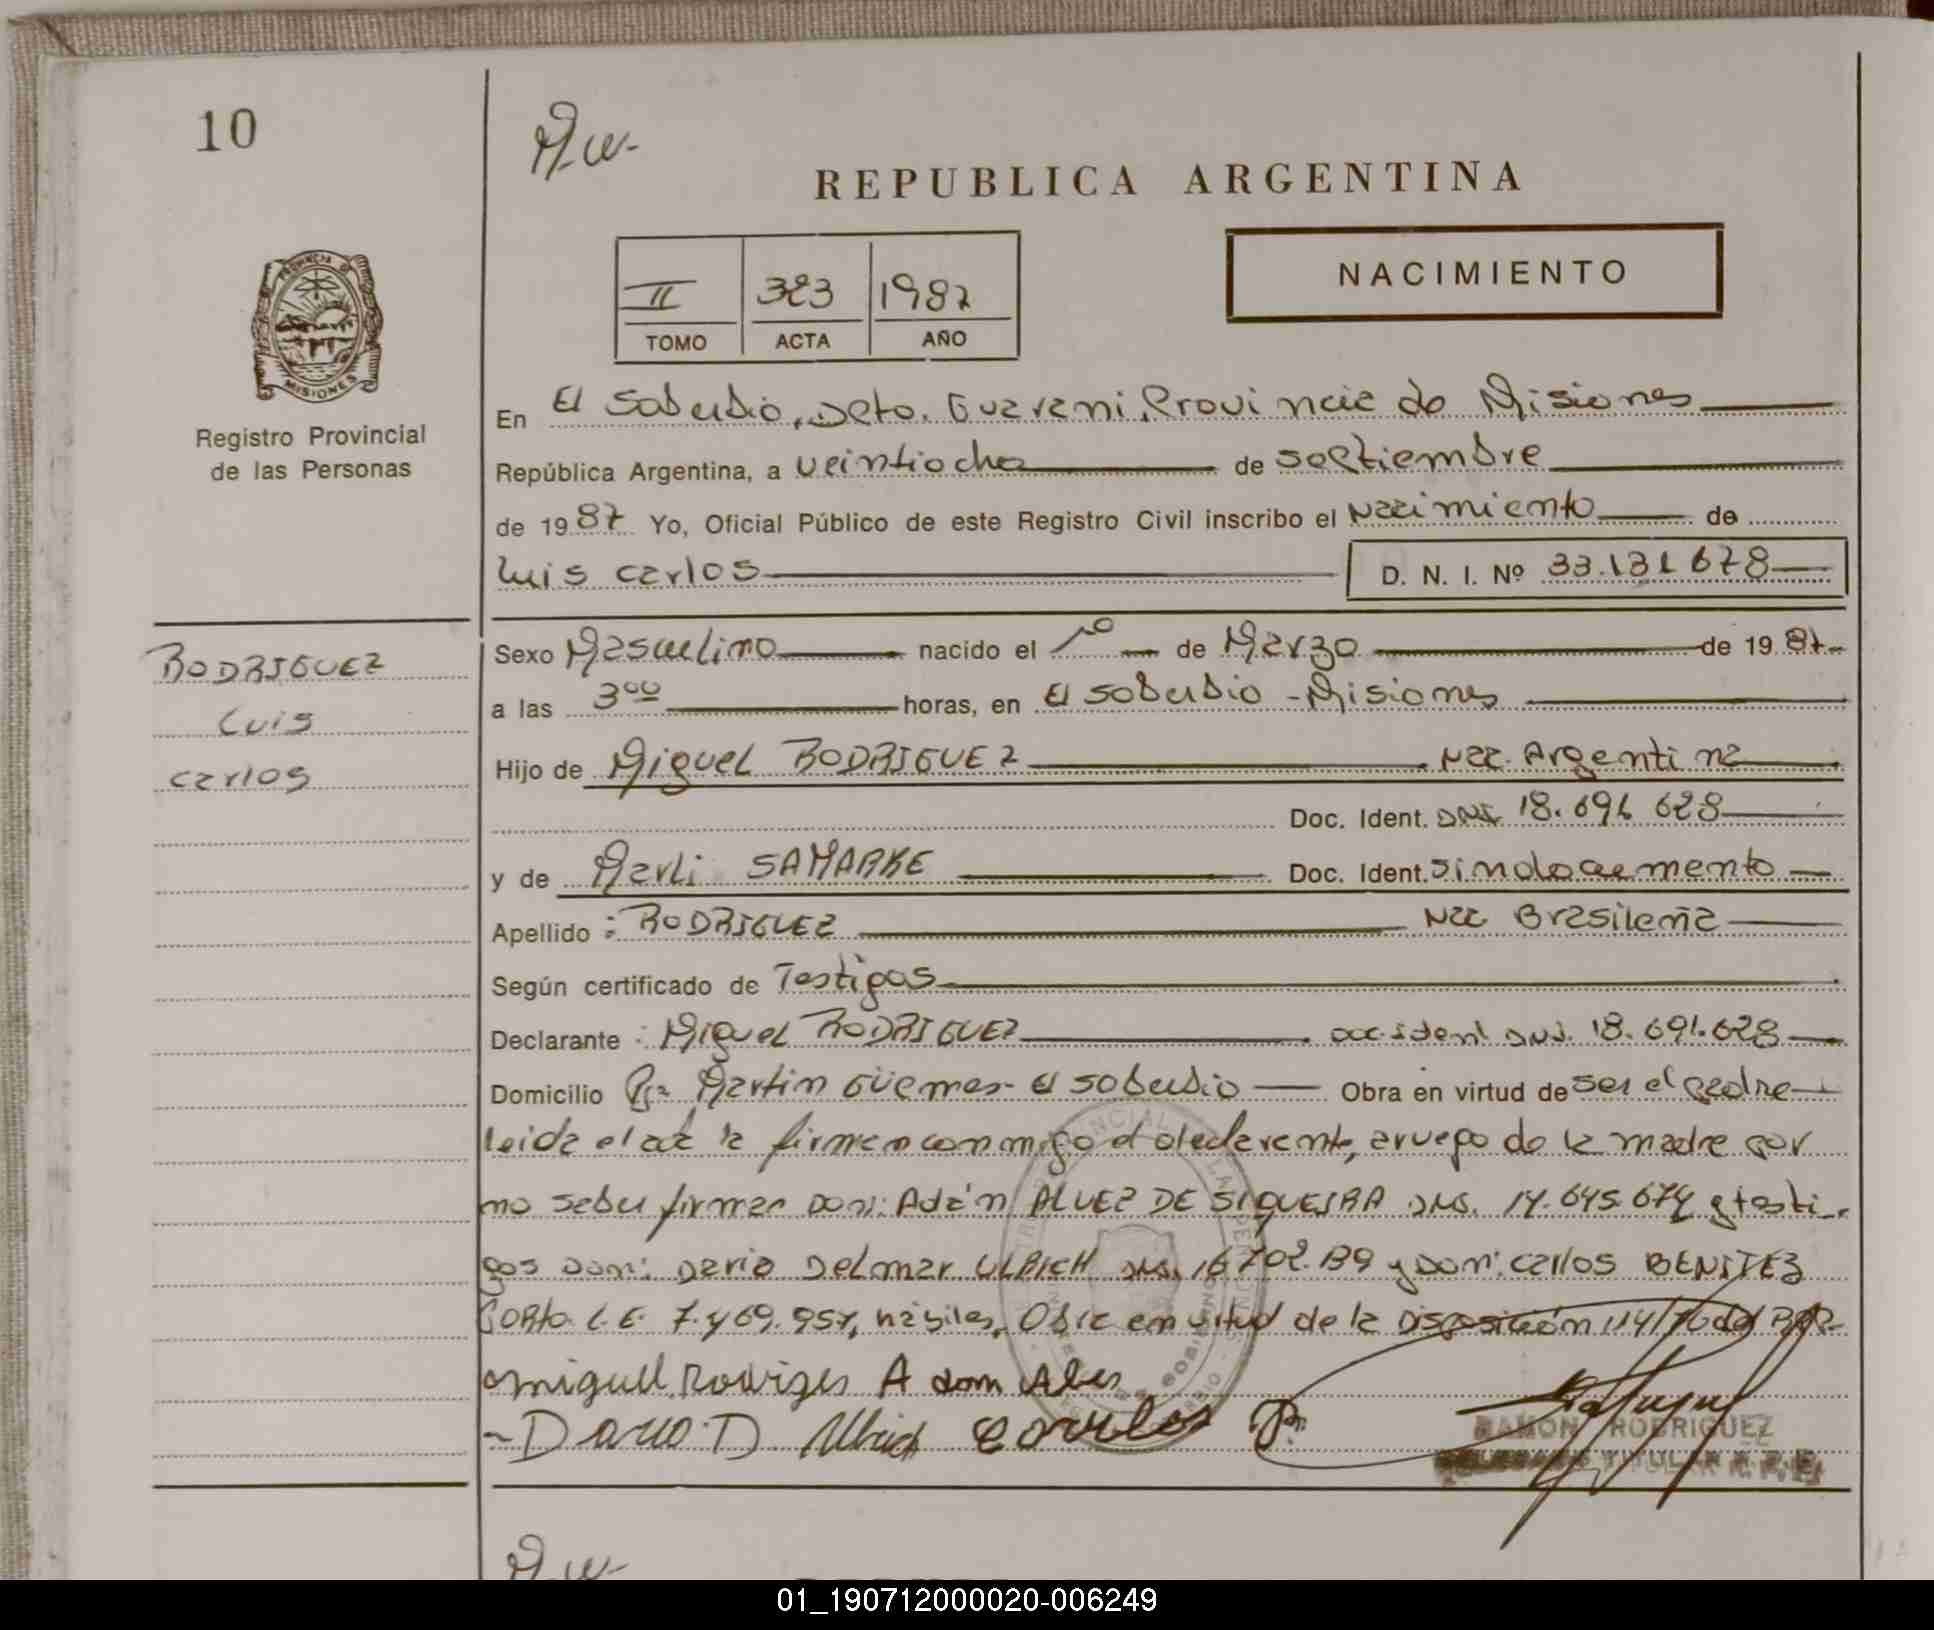 10
REPUBLICA ARGENTINA
NACIMIENTO
II 323 1987
TOMO ACTA AÑO
PROVINCIA DE MISIONES
Registro Provincial
de las Personas
En El Soberbio, Dcto. Guarani, Provincia de Misiones
República Argentina, a veintiocho de septiembre
de 1987 Yo, Oficial Público de este Registro Civil inscribo el Nacimiento de
Luis Carlos D. N. I. Nº 33.131678
RODRIGUEZ
Luis
Carlos
Sexo Masculino nacido el 1º de Marzo de 1987
a las 3 00 horas, en El Soberbio - Misiones
Hijo de Miguel RODRIGUEZ Nac. Argentina
Doc. Ident. DNI 18.691 628
y de Marli SAMARKE Doc. Ident. sin documento
Apellido : RODRIGUEZ Nac Brasileña
Según certificado de Testigos
Declarante : Miguel RODRIGUEZ Doc. Ident DNI. 18.691.628
Domicilio Martin Güemes - El Soberbio Obra en virtud de ser el padre
leida el acta la firman conmigo el declarante, a ruego de la madre por
no saber firmar Don: Adán ALVEZ DE SIQUEIRA DNI. 14.645.674 y testi-
gos Don: Dario Delmar ULRICH DNI. y Don: Carlos BENITEZ
L.E. 7.469.957, hábiles, Obra en virtud de la Disposición 114/76 del
miguel Rodrigues A dom Alves
Dario D Ulrich Carlos
RAMON RODRIGUEZ
TITULAR
01_190712000020-006249